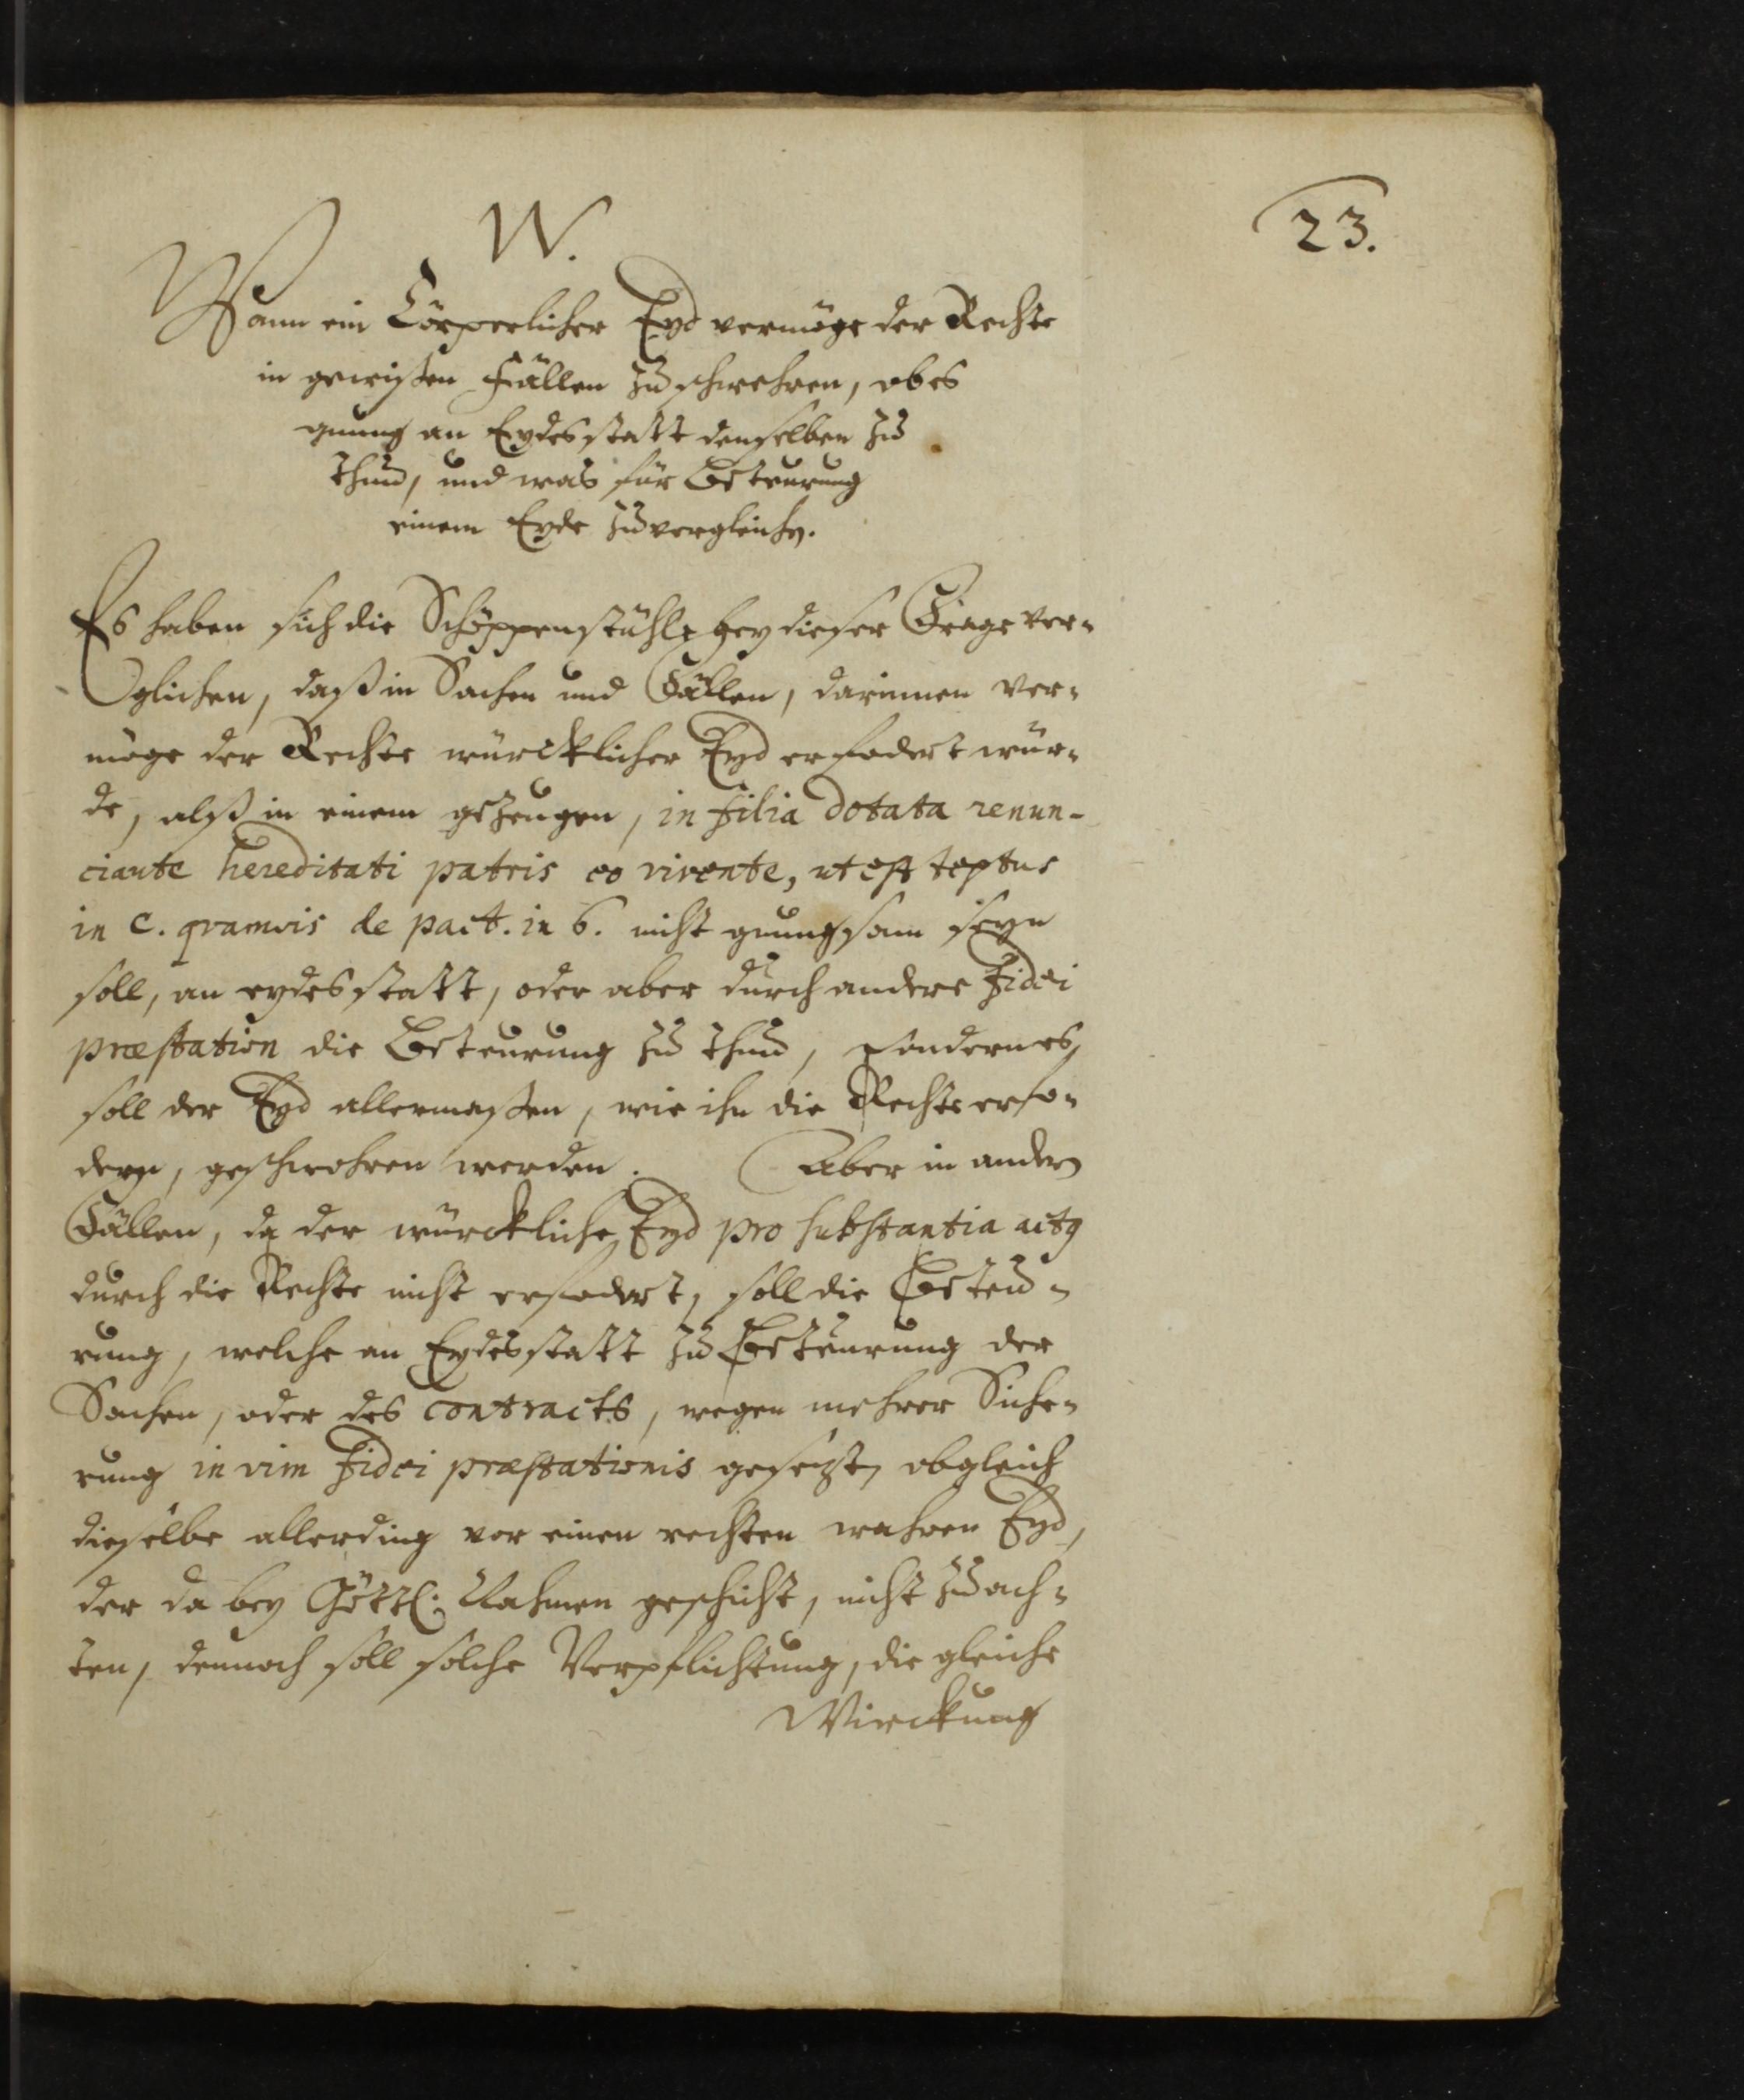 23.
W.
Wann ein Cörperlicher Eyd vermöge der Rechte
in gewißen Fällen zu schwehren, ob es
gnung an Eydes statt denselben zu
thun, und was für Beteurung
einem Eyde zuvergleichen.
Es haben sich die Schöppenstühle bey dieser Frage ver-
glichen, daß in Sachen und Fällen, darinnen ver-
möge der Rechte würcklicher Eyd erfodert wür-
de, alß in einem gezeugen, in filia dotata renun-
ciante hereditati patris eo vivente, ut est textus
in c. qvamvis de pact. in 6. nicht gnungsam seyn
soll, an eydes statt, oder aber durch andere Fidei
præstation die Beteurung zu thun, sondern es
soll der Eyd allermaßen, wie ihn die Rechte erfo-
dern, geschwohren werden. Aber in andern
Fällen, da der würckliche Eyd pro substantia act9
durch die Rechte nicht erfodert, soll die Beteu-
rung, welche an Eydes statt zu Beteurung der
Sachen, oder des Contracts, wegen mehrer Siche-
rung in vim Fidei præstationis gesetzt, obgleich
dieselbe allerding vor einen rechten wahren Eyd,
der da bey Göttl: Nahmen geschicht, nicht zu ach-
ten, dennoch soll solche Verpflichtung, die gleiche
Wirckung